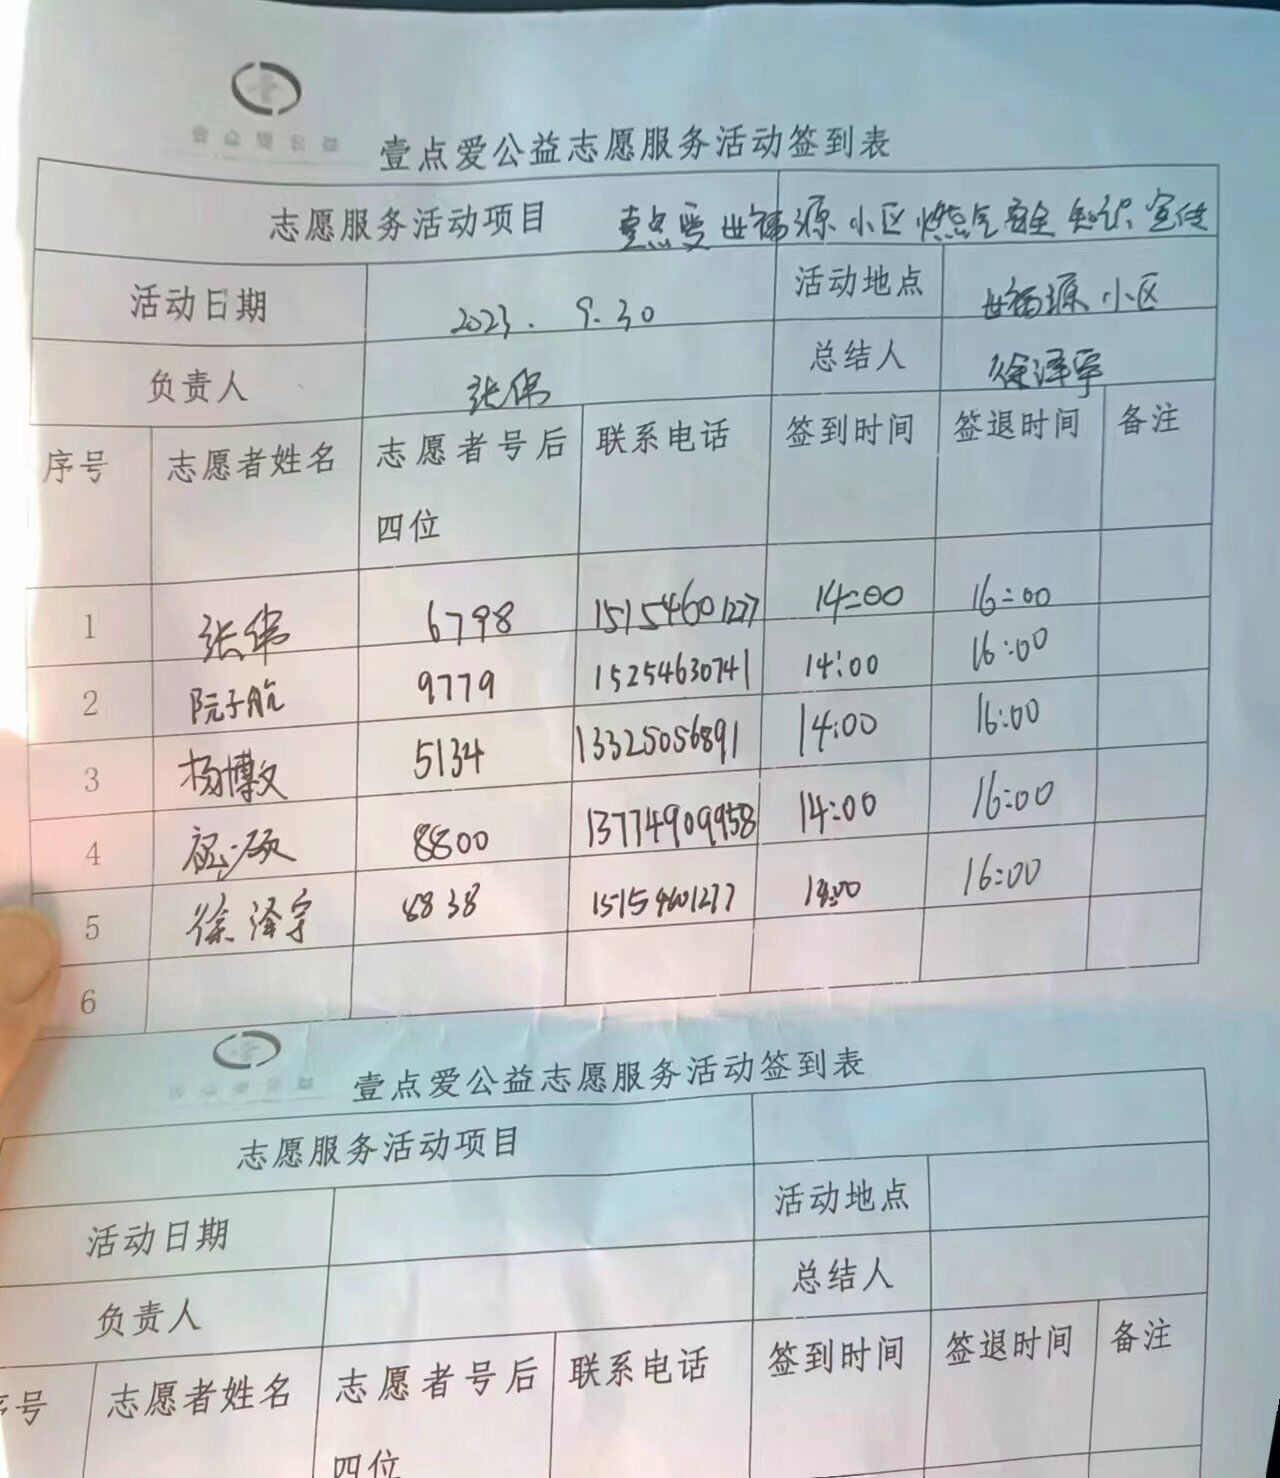 壹点爱公益志愿服务活动签到表
志愿服务活动项目 壹点爱世福源小区燃气安全知识宣传
活动日期 2023. 9.30 活动地点 世福源小区
负责人 张伟 总结人 徐泽宇
序号 志愿者姓名 志愿者号后四位 联系电话 签到时间 签退时间 备注
1 张伟 6798 15154601277 14:00 16:00
2 阮子航 9779 15254630741 14:00 16:00
3 杨博文 5134 13325056891 14:00 16:00
4 8800 13774909958 14:00 16:00
5 徐泽宇 8838 15154601277 14:00 16:00
6
壹点爱公益志愿服务活动签到表
志愿服务活动项目
活动日期 活动地点
负责人 总结人
序号 志愿者姓名 志愿者号后四位 联系电话 签到时间 签退时间 备注